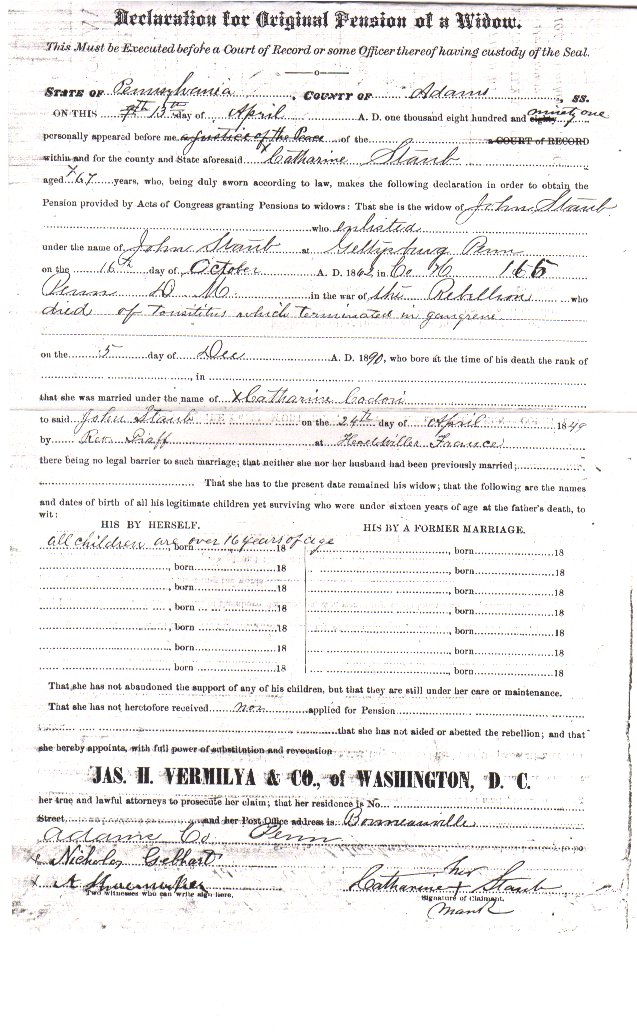 Declaration for Original Pension of a Widow.
This Must be Executed before a Court of Record or some Officer thereof having custody of the Seal.
STATE OF Pennsylvania, COUNTY OF Adams, SS.
ON THIS 13th day of April A. D. one thousand eight hundred and eighty ninety one
personally appeared before me a Justice of the Peace of the a COURT OF RECORD
within and for the county and State aforesaid x Catharine Staub
aged x 67 years, who, being duly sworn according to law, makes the following declaration in order to obtain the
Pension provided by Acts of Congress granting Pensions to widows: That she is the widow of John Staub
who enlisted
under the name of John Staub at Gettysburg Penn
on the 16th day of October A. D. 1862, in Co K 165
Penn D. M. in the war of the Rebellion who
died of tonsititus which terminated in gangrene
on the 5 day of Dec A. D. 1890, who bore at the time of his death the rank of
, in
that she was married under the name of x Catharine Codori
to said John Staub on the 24th day of April 1849
by Rev. Graff at France
there being no legal barrier to such marriage; that neither she nor her husband had been previously married;
That she has to the present date remained his widow; that the following are the names
and dates of birth of all his legitimate children yet surviving who were under sixteen years of age at the father's death, to
wit:
HIS BY HERSELF. HIS BY A FORMER MARRIAGE.
all children are over 16 years of age
, born 18 , born 18
, born 18 , born 18
, born 18 , born 18
, born 18 , born 18
, born 18 , born 18
, born 18 , born 18
, born 18 , born 18
That she has not abandoned the support of any of his children, but that they are still under her care or maintenance.
That she has not heretofore received nor applied for Pension
that she has not aided or abetted the rebellion; and that
she hereby appoints, with full power of substitution and revocation
JAS. H. VERMILYA & CO., of WASHINGTON, D. C.
her true and lawful attorneys to prosecute her claim; that her residence is No.
Street and her Post Office address is Bonneauville
Adams Co Penn
x Nicholas Gelhart
x A Shoemaker
Two witnesses who can write sign here.
her
Catharine x Staub
Signature of Claimant.
mark